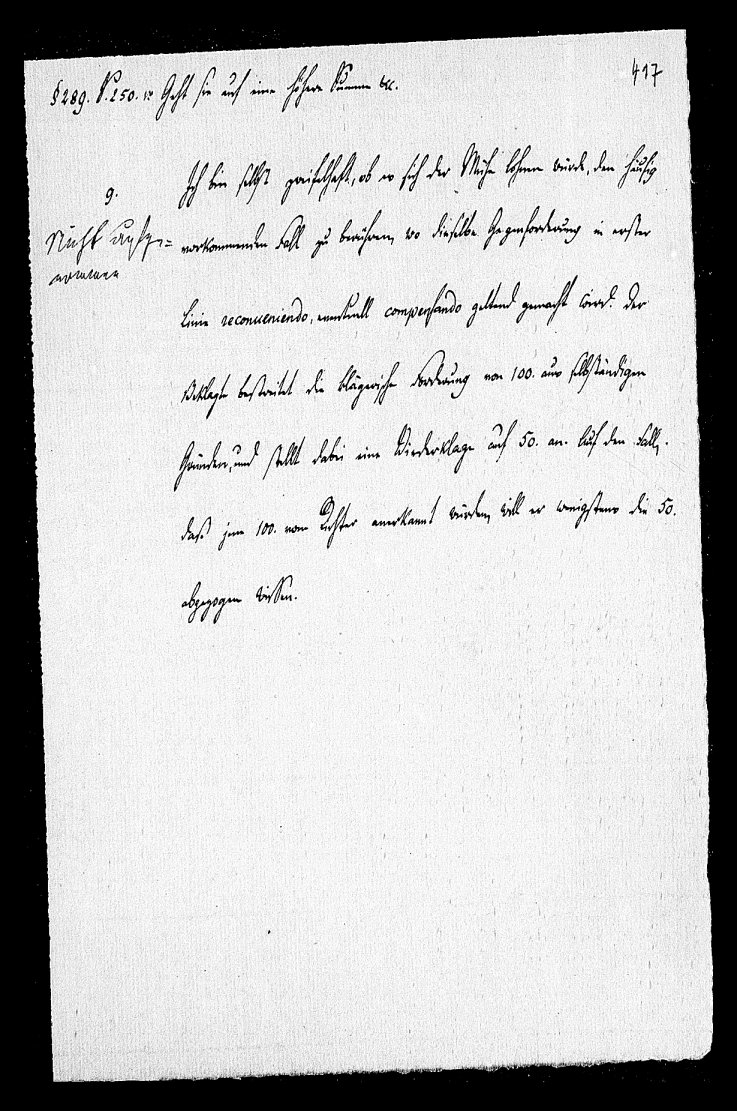 417
§ 289. S. 250. v Geht sie auf eine höhere Summe etc.
9.
Nicht aufge=
nommen
Ich bin selbst zweifelhaft, ob es sich der Mühe lohnen würde, den häufig
vorkommenden Fall zu berühren, wo dieselbe Gegenforderung in erster
Linie reconveniendo, eventuell compensando geltend gemacht wird. Der
Beklagte bestreitet die klägerische Forderung von 100. aus selbständigen
Gründen, und stellt dabei eine Wiederklage auf 50. an. Auf den Fall,
daß jene 100. vom Richter anerkannt würden, will er wenigstens die 50.
abgezogen wissen.